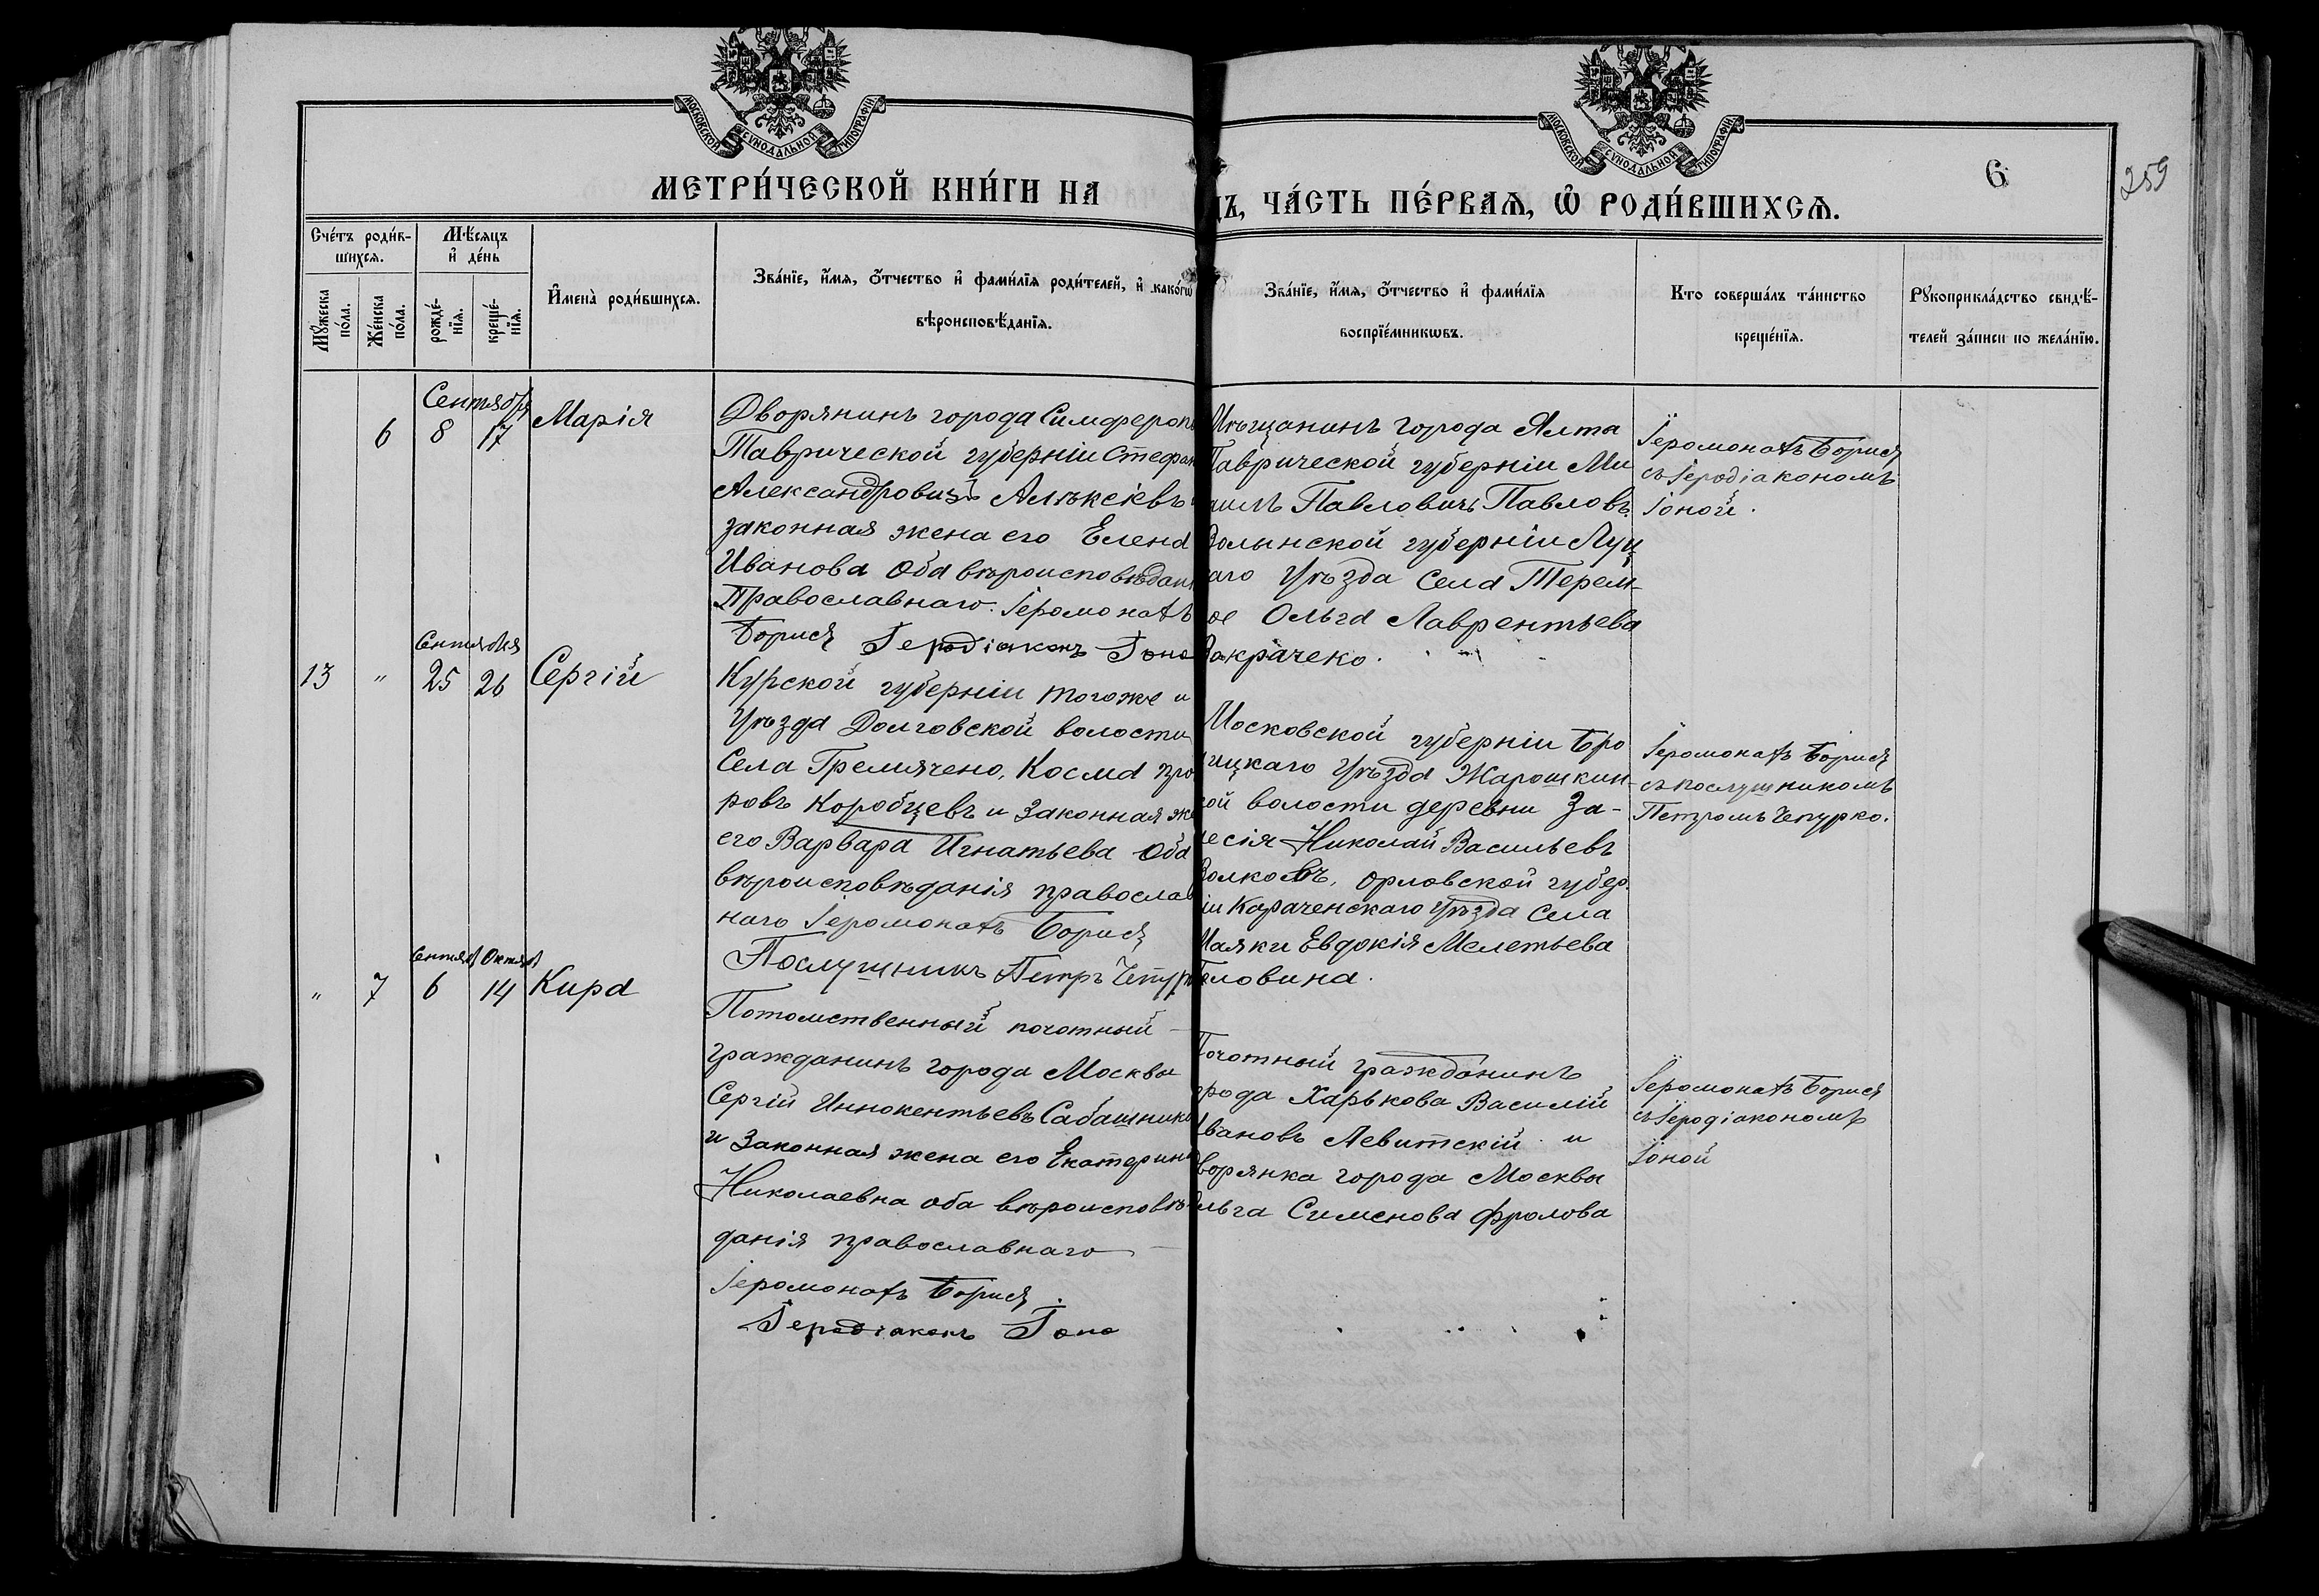 МОСКОВСКОЙ СѴНОДАЛЬНОЙ ТИПОГРАФІИ
МОСКОВСКОЙ СѴНОДАЛЬНОЙ ТИПОГРАФІИ
МЕТРИ́ЧЕСКОЙ КНИ́ГИ НА
ДЪ, ЧА́СТЬ ПЕ́РВАѦ, Ѡ҆ РОДИ́ВШИХСѦ.
6
259
Сче́тъ роди́в-
шихсѧ.
Мѣ́сѧцъ
и҆ де́нь
Мꙋ́жеска
по́ла.
Же́нска
по́ла.
рожде́-
нїѧ.
креще́-
нїѧ.
И҆мена̀ роди́вшихсѧ.
Зва́нїе, и҆́мѧ, ѻ҆́тчество и҆ фами́лїѧ роди́телей, и҆ како́гѡ
вѣроисповѣ́данїѧ.
Зва́нїе, и҆́мѧ, ѻ҆́тчество и҆ фами́лїѧ
воспрїе́мникѡвъ.
Кто соверша́лъ та́инство
креще́нїѧ.
Рꙋкоприкла́дство свидѣ́-
телей за́писи по жела́нїю.
Сентября
6 8 17 Марія
Дворянинъ города Симфероп
Таврической губерніи Стефан
Александровичъ Алѣксѣевъ
законная жена его Елена
Иванова оба вѣроисповѣдан
Православнаго. Іеромонахъ
Борисъ Іеродіаконъ Іона
Мѣщанинъ города Ялта
Таврической губерніи Ми
аилъ Павловичъ Павловъ.
Волынской губерніи Луц
аго уѣзда села Терем-
ое Ольга Лаврентьева
Закрачеко.
Іеромонахъ Борисъ
съ Іеродіакономъ
Іоной.
Сентября
13 " 25 26 Сергій
Курской губерніи тогоже и
Уѣзда Долговской волости
Села Гремячено, Косма про
ровъ Коробцевъ и законная же
его Варвара Игнатьева оба
вѣроисповѣданія православ
наго Іеромонахъ Борисъ
Послушникъ Петръ Чепурк
Московской губерніи Бро
ицкаго уѣзда Жарошкин-
ой волости деревни За-
лесія Николай Васильевъ
Волковъ, Орловской губер
іи Караченскаго уѣзда села
Маяки Евдокія Мелетьева
Головина.
Іеромонахъ Борисъ
съ послушникомъ
Петромъ Чепурко.
Сентяб Октяб
" 7 6 14 Кира
Потомственный почотный
гражданинъ города Москвы
Сергій Иннокентьевъ Сабашнико
и законная жена его Екатерина
Николаевна оба вѣроисповѣ
данія православнаго
Іеромонахъ Борисъ
Іеродіаконъ Іона
Почотный гражданинъ
орода Харькова Василій
Ивановъ Левитскій и
Дворянка города Москвы
Ольга Сименова Фролова
Іеромонахъ Борисъ
съ Іеродіакономъ
Іоной